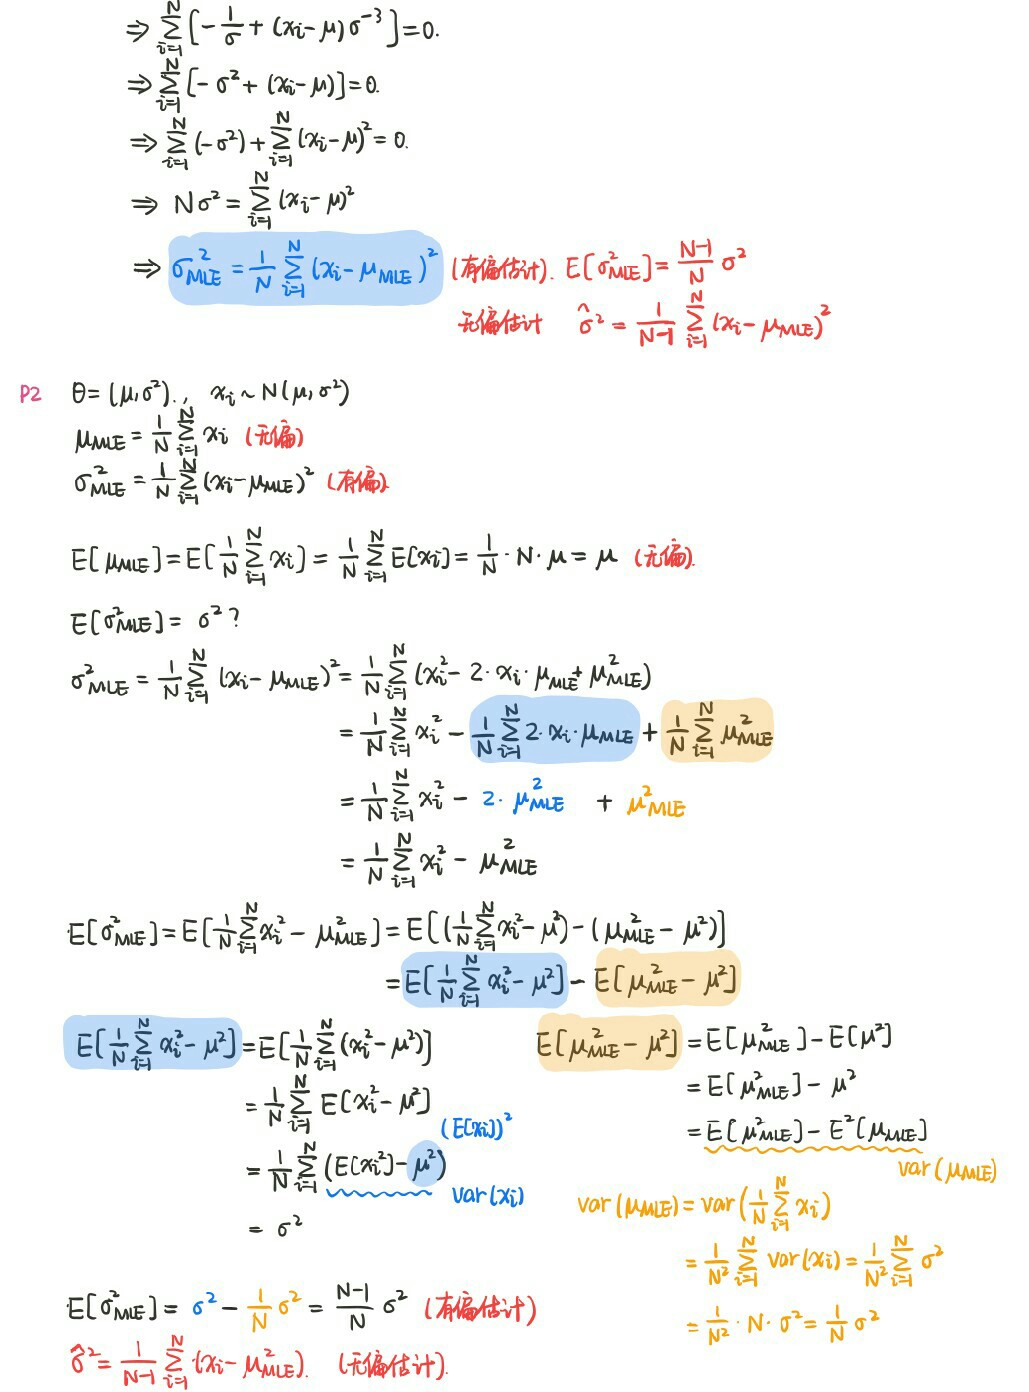 ⇒ ∑_{i=1}^{N} [-1/σ + (x_i-μ)σ^{-3}] = 0.
⇒ ∑_{i=1}^{N} [-σ² + (x_i-μ)] = 0.
⇒ ∑_{i=1}^{N} (-σ²) + ∑_{i=1}^{N} (x_i-μ)² = 0.
⇒ Nσ² = ∑_{i=1}^{N} (x_i-μ)²
⇒ σ²_{MLE} = 1/N ∑_{i=1}^{N} (x_i-μ_{MLE})² (有偏估计). E[σ²_{MLE}] = (N-1)/N σ²
无偏估计 σ̂² = 1/(N-1) ∑_{i=1}^{N} (x_i-μ_{MLE})²
P2 θ=(μ,σ²)., x_i ~ N(μ,σ²)
μ_{MLE} = 1/N ∑_{i=1}^{N} x_i (无偏)
σ²_{MLE} = 1/N ∑_{i=1}^{N} (x_i-μ_{MLE})² (有偏).
E[μ_{MLE}] = E[1/N ∑_{i=1}^{N} x_i] = 1/N ∑_{i=1}^{N} E[x_i] = 1/N · N · μ = μ (无偏).
E[σ²_{MLE}] = σ² ?
σ²_{MLE} = 1/N ∑_{i=1}^{N} (x_i-μ_{MLE})² = 1/N ∑_{i=1}^{N} (x_i² - 2·x_i·μ_{MLE} + μ²_{MLE})
= 1/N ∑_{i=1}^{N} x_i² - 1/N ∑_{i=1}^{N} 2·x_i·μ_{MLE} + 1/N ∑_{i=1}^{N} μ²_{MLE}
= 1/N ∑_{i=1}^{N} x_i² - 2·μ²_{MLE} + μ²_{MLE}
= 1/N ∑_{i=1}^{N} x_i² - μ²_{MLE}
E[σ²_{MLE}] = E[1/N ∑_{i=1}^{N} x_i² - μ²_{MLE}] = E[(1/N ∑_{i=1}^{N} x_i² - μ²) - (μ²_{MLE} - μ²)]
= E[1/N ∑_{i=1}^{N} x_i² - μ²] - E[μ²_{MLE} - μ²]
E[1/N ∑_{i=1}^{N} x_i² - μ²] = E[1/N ∑_{i=1}^{N} (x_i² - μ²)]
= 1/N ∑_{i=1}^{N} E[x_i² - μ²]
(E[x_i])²
= 1/N ∑_{i=1}^{N} (E[x_i²] - μ²)
var(x_i)
= σ²
E[μ²_{MLE} - μ²] = E[μ²_{MLE}] - E[μ²]
= E[μ²_{MLE}] - μ²
= E[μ²_{MLE}] - E²[μ_{MLE}]
var(μ_{MLE})
var(μ_{MLE}) = var(1/N ∑_{i=1}^{N} x_i)
= 1/N² ∑_{i=1}^{N} var(x_i) = 1/N² ∑_{i=1}^{N} σ²
= 1/N² · N · σ² = 1/N σ²
E[σ²_{MLE}] = σ² - 1/N σ² = (N-1)/N σ² (有偏估计)
σ̂² = 1/(N-1) ∑_{i=1}^{N} (x_i - μ²_{MLE}). (无偏估计).